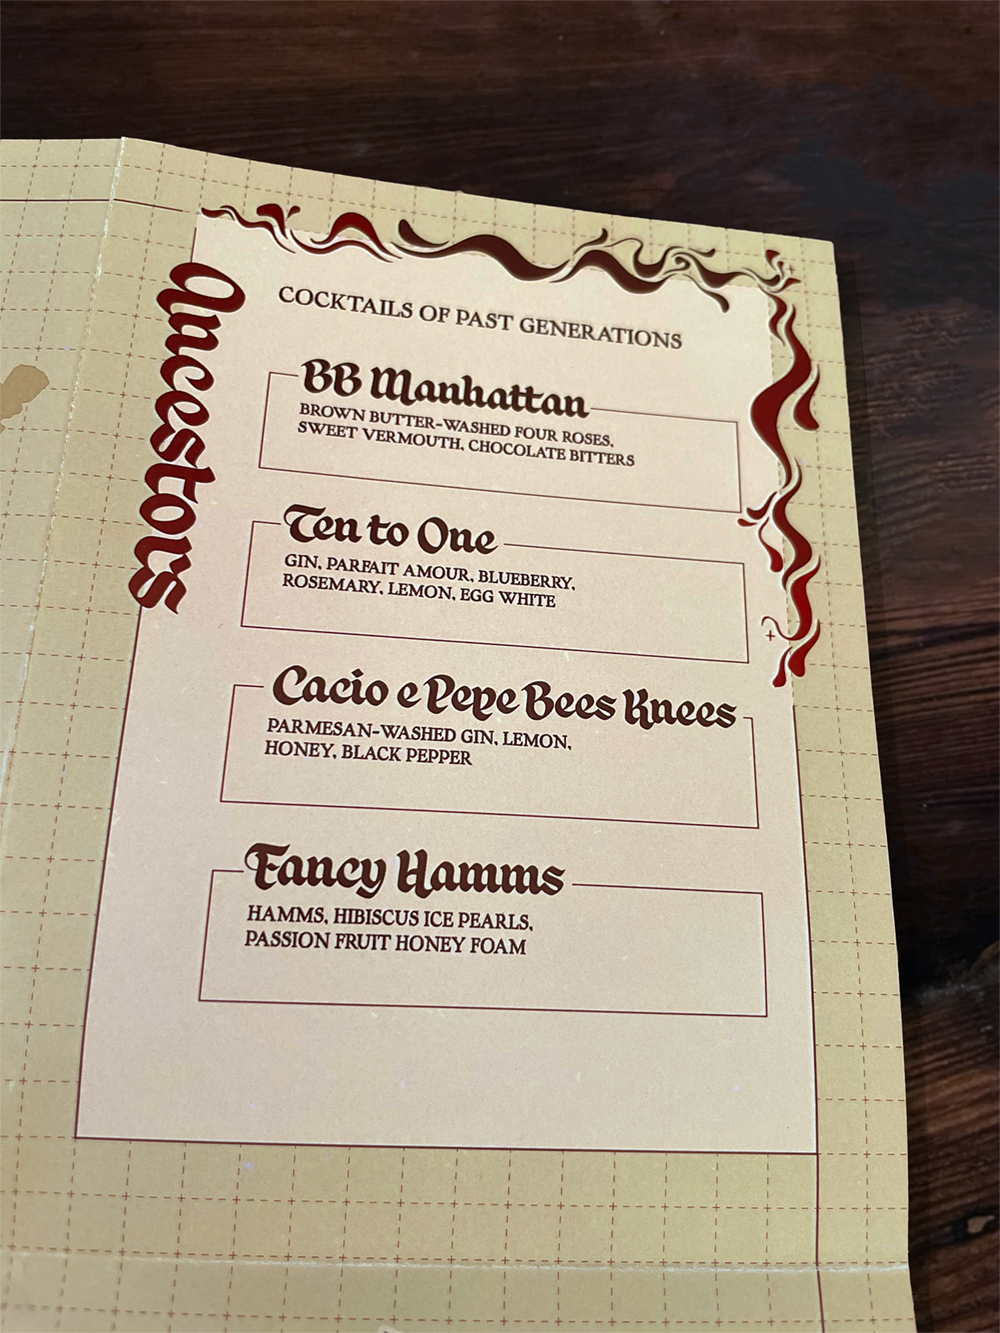 Ancestors
COCKTAILS OF PAST GENERATIONS
BB Manhattan
BROWN BUTTER-WASHED FOUR ROSES,
SWEET VERMOUTH, CHOCOLATE BITTERS
Ten to One
GIN, PARFAIT AMOUR, BLUEBERRY,
ROSEMARY, LEMON, EGG WHITE
Cacio e Pepe Bees Knees
PARMESAN-WASHED GIN, LEMON,
HONEY, BLACK PEPPER
Fancy Hamms
HAMMS, HIBISCUS ICE PEARLS,
PASSION FRUIT HONEY FOAM